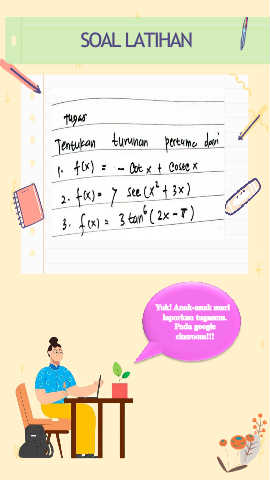 SOAL LATIHAN
Tugas
Tentukan turunan pertama dari
1. f(x) = - cot x + cosec x
2. f(x) = 7 sec (x² + 3x)
3. f(x) = 3 tan⁶ (2x - π)
Yuk! Anak-anak mari
laporkan tugasnya.
Pada google
clasroom!!!